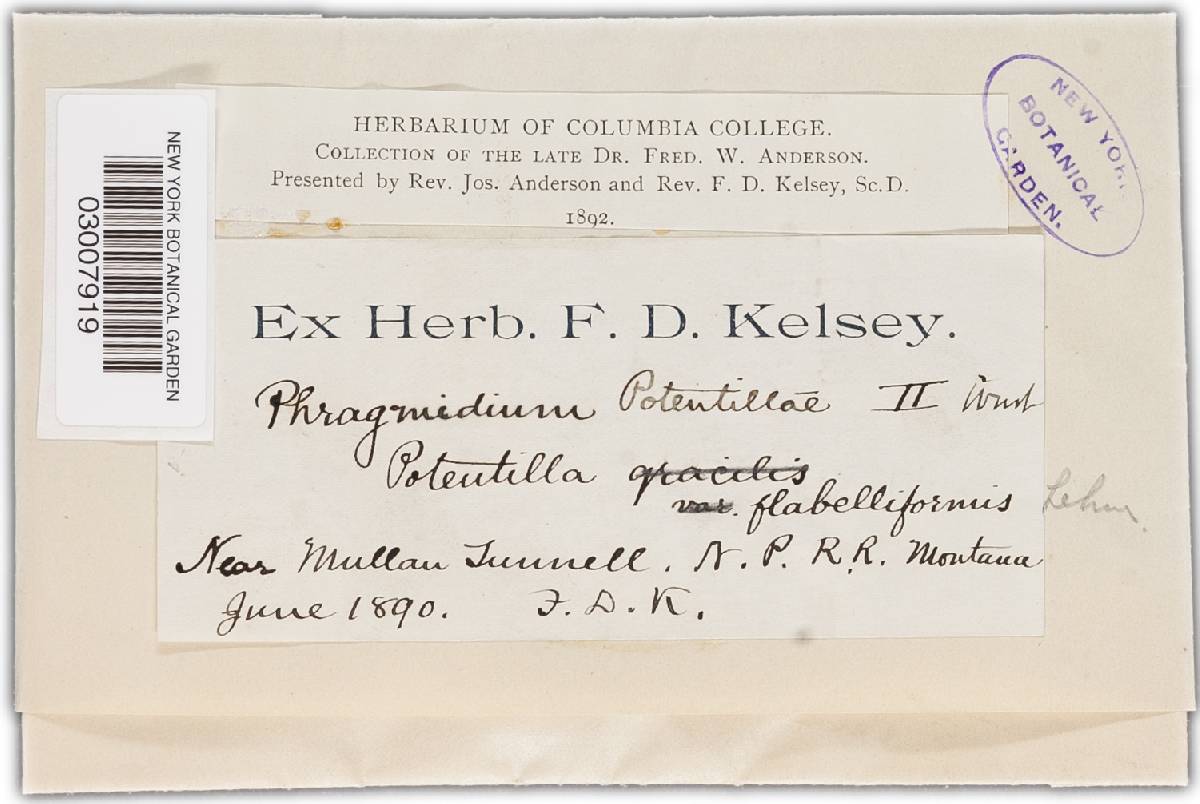 HERBARIUM OF COLUMBIA COLLEGE.
COLLECTION OF THE LATE DR. FRED. W. ANDERSON.
Presented by Rev. Jos. Anderson and Rev. F. D. Kelsey, Sc.D.
1892.
NEW YORK
BOTANICAL
GARDEN.
NEW YORK BOTANICAL GARDEN
03007919
Ex Herb. F. D. Kelsey.
Phragmidium Potentillae II
Potentilla gracilis
var. flabelliformis Lehm.
Near Mullan Tunnell. N. P. R. R. Montana
June 1890. F. D. K.